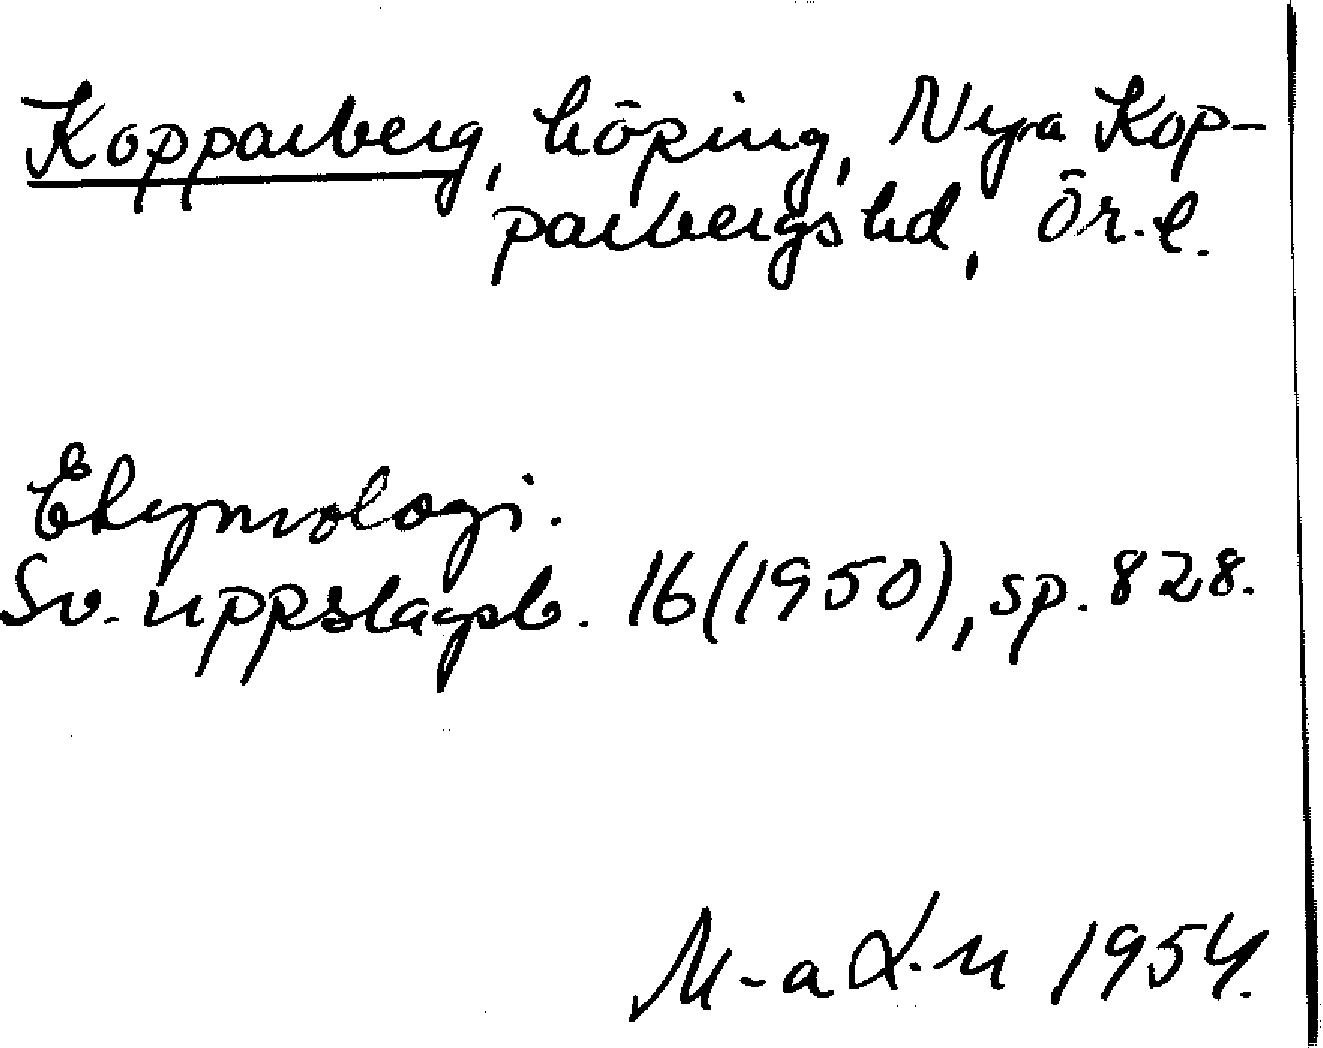 Kopparberg, köping, Nya Kop-
parbergs hd, Ör. l.
Etymologi.
Sv. uppslagsb. 16(1950), sp. 828.
M-a L-n 1954.